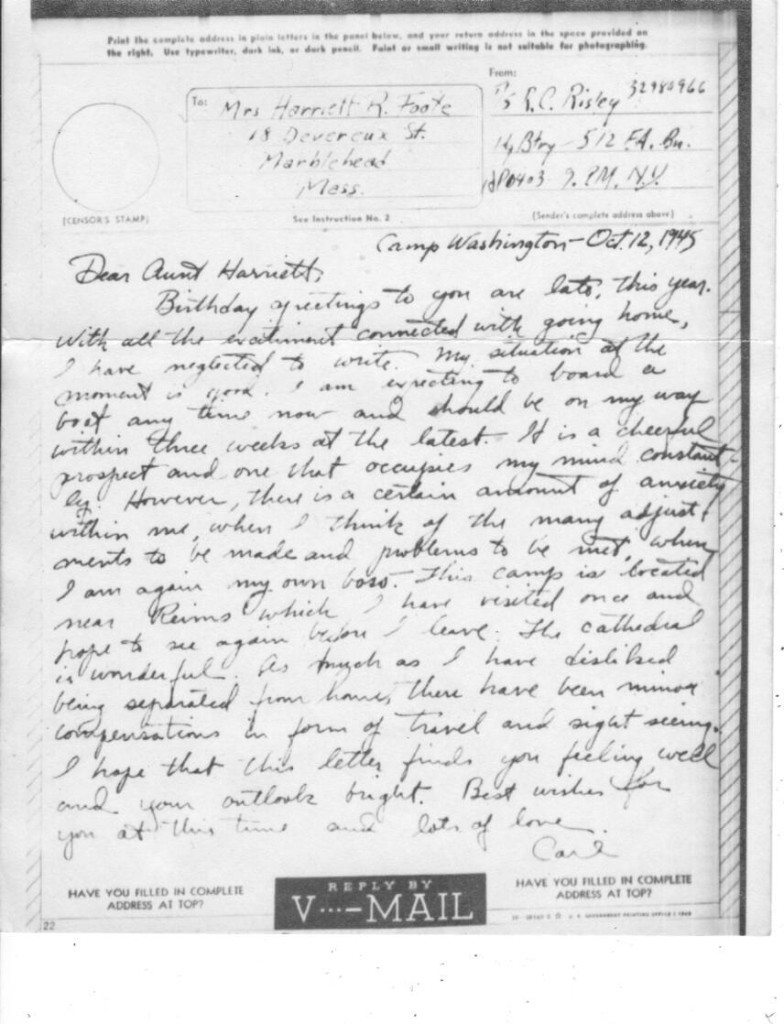 Print the complete address in plain letters in the panel below, and your return address in the space provided on
the right. Use typewriter, dark ink, or dark pencil. Faint or small writing is not suitable for photographing.
To: Mrs Harriett R. Foote
18 Devereux St.
Marblehead
Mass.
From:
R.C. Risley 32980966
Hq Btry 512 F.A. Bn.
APO 403 P.M. N.Y.
[CENSOR'S STAMP]
See Instruction No. 2
(Sender's complete address above)
Camp Washington - Oct. 12, 1945
Dear Aunt Harriett,
Birthday greetings to you are late, this year.
With all the excitement connected with going home,
I have neglected to write. My situation at the
moment is good. I am expecting to board a
boat any time now and should be on my way
within three weeks at the latest. It is a cheerful
prospect and one that occupies my mind constant-
ly. However, there is a certain amount of anxiety
within me, when I think of the many adjust-
ments to be made and problems to be met, when
I am again my own boss. This camp is located
near Reims which I have visited once and
hope to see again before I leave. The cathedral
is wonderful. As much as I have disliked
being separated from home, there have been minor
compensations in form of travel and sight seeing.
I hope that this letter finds you feeling well
and your outlook bright. Best wishes for
you at this time and lots of love.
Carl
HAVE YOU FILLED IN COMPLETE
ADDRESS AT TOP?
REPLY BY
V···—MAIL
HAVE YOU FILLED IN COMPLETE
ADDRESS AT TOP?
U. S. GOVERNMENT PRINTING OFFICE
22